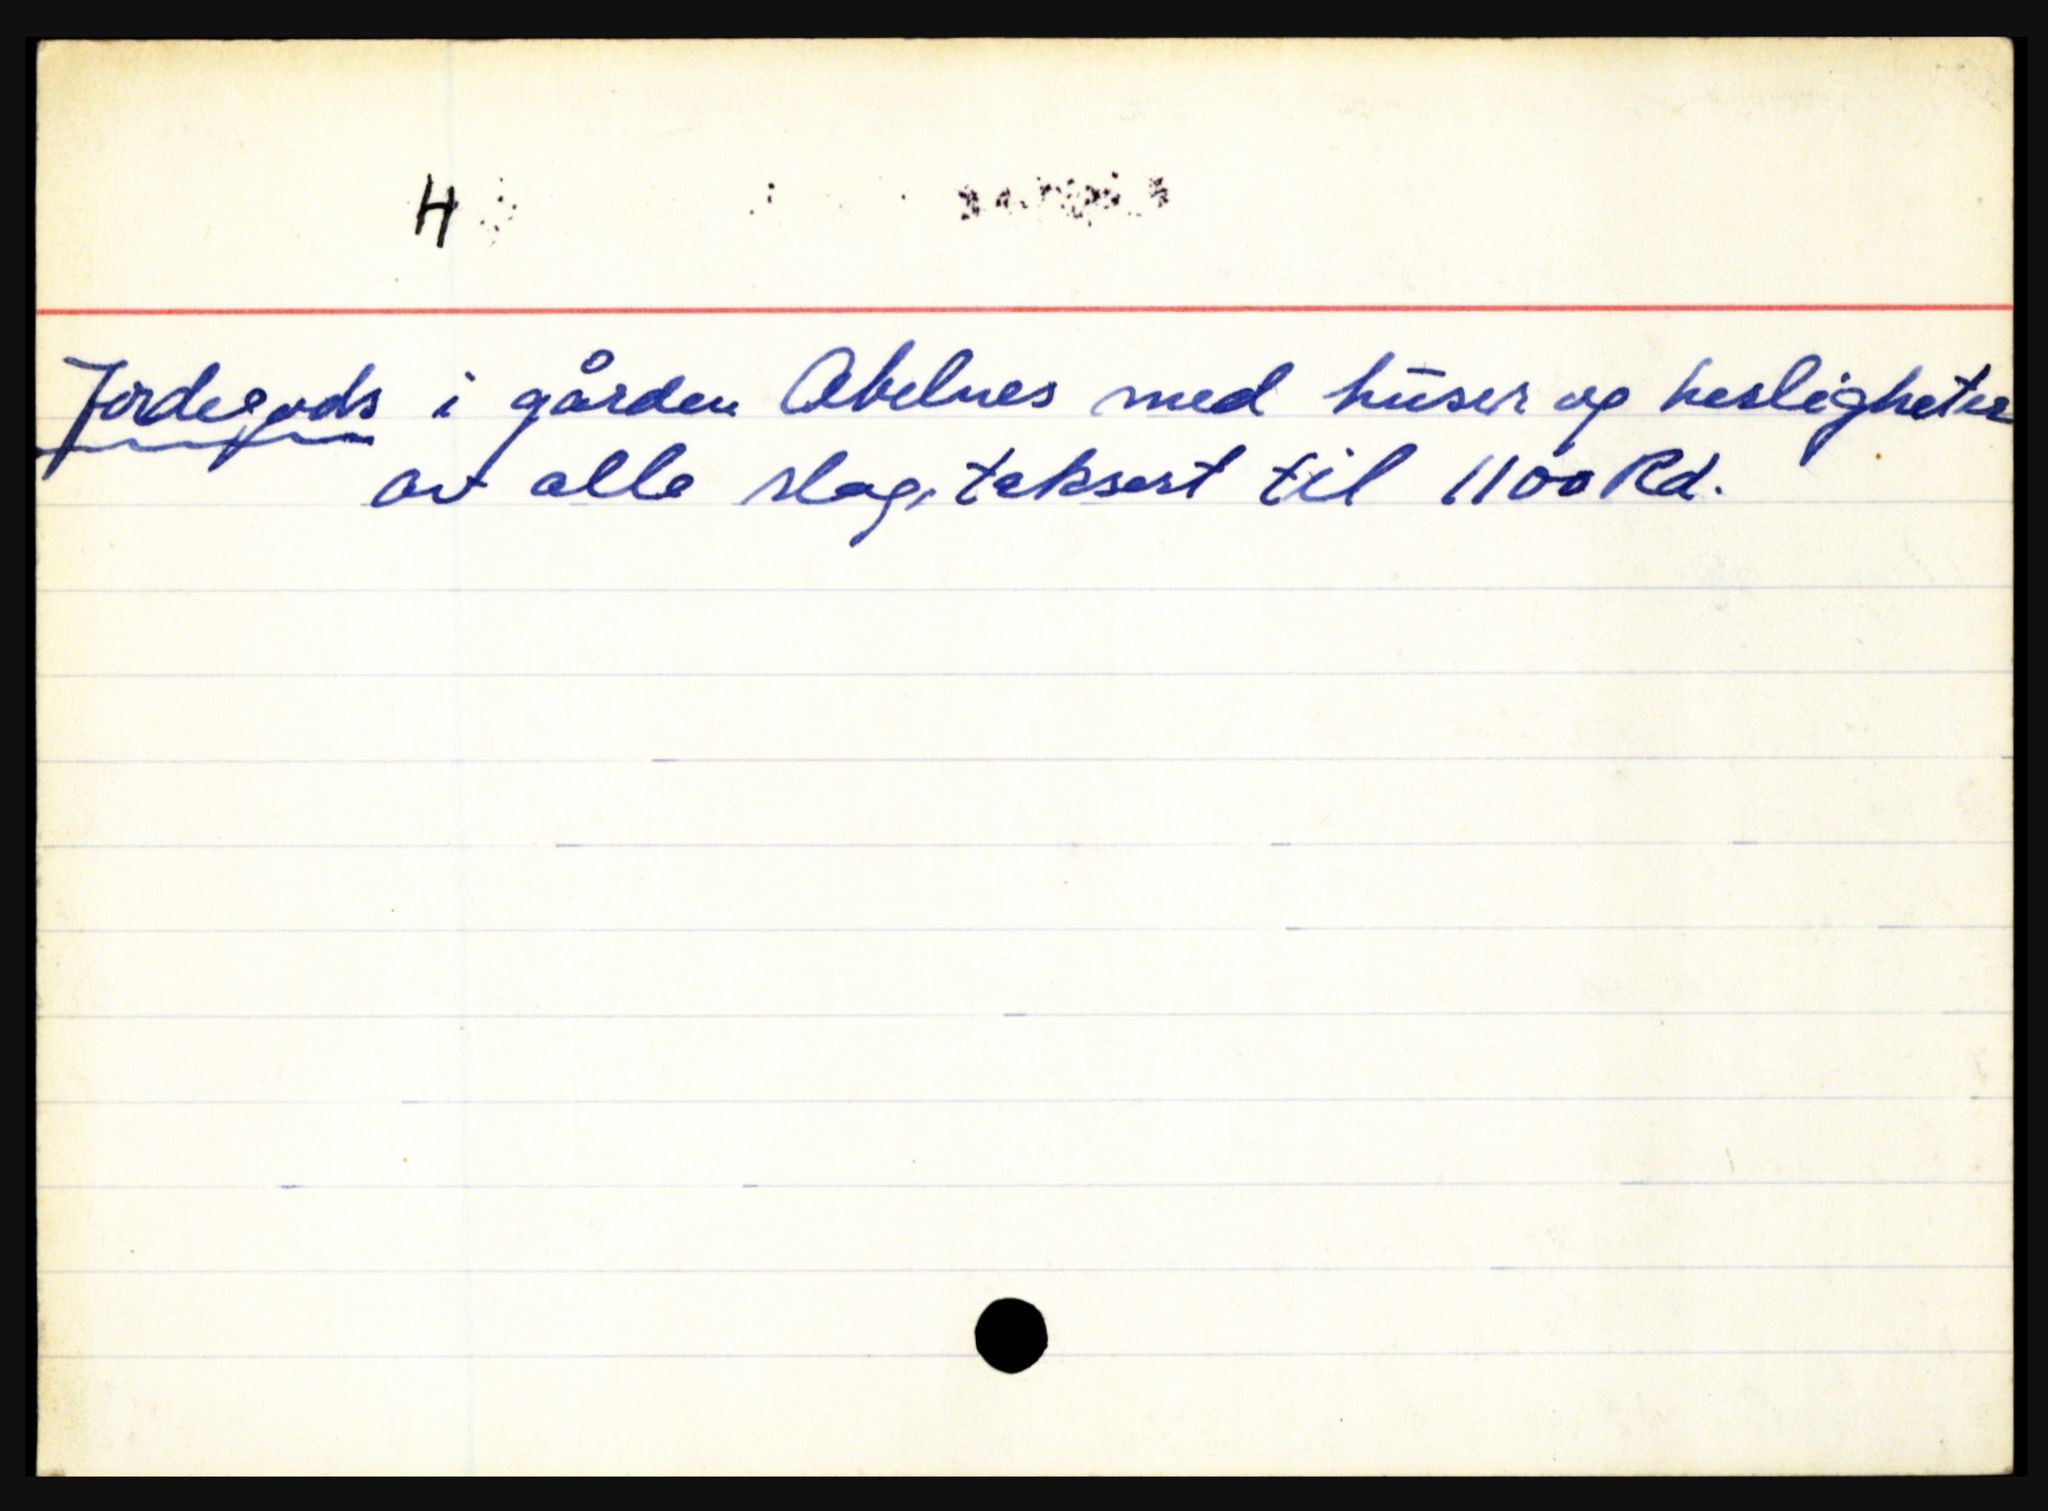 H
Jordegods i gården Abelnes med huser og herligheter
av alle slag, taksert til 1100 Rd.